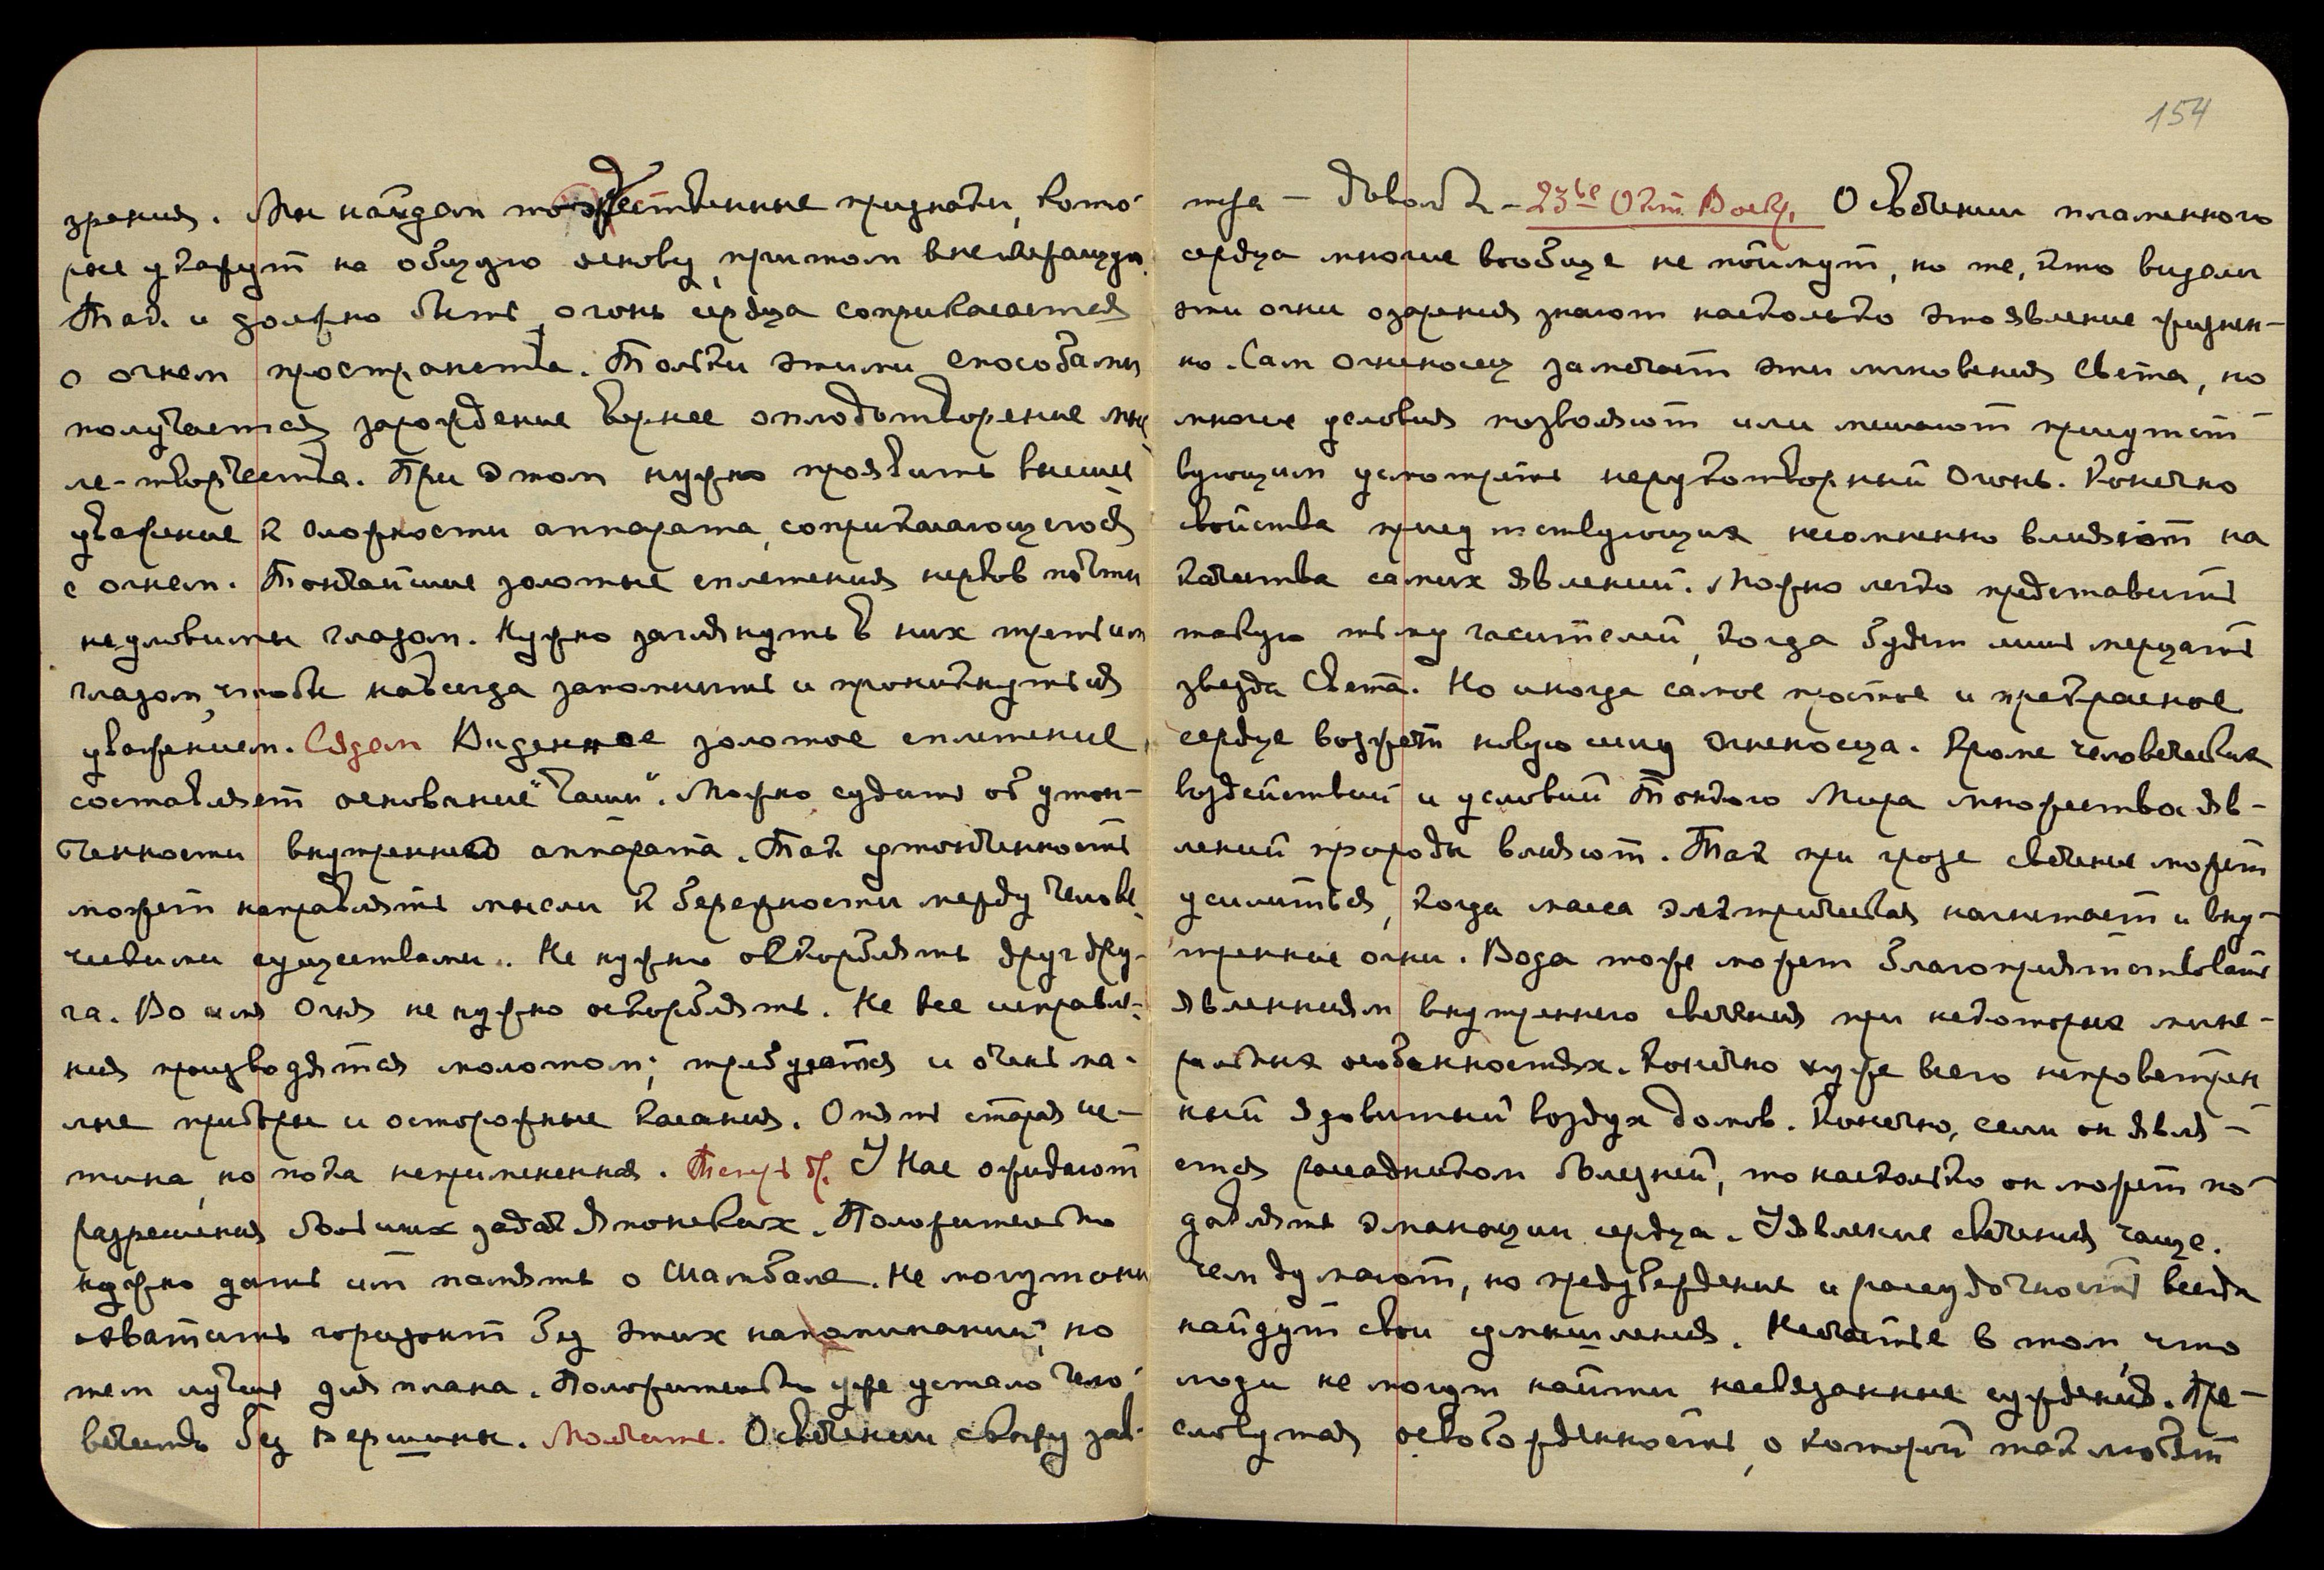 зрения. Мы найдем тождественные признаки, кото-
рые укажут на общую основу, притом вне
Так и должно быть, огонь сердца соприкасается
с огнем пространства. Только этими способами
получается зарождение вернее оплодотворение мы
ле-творчества. При этом нужно проявить высшее
уважение к сложности аппарата, соприкасающегося
с огнем. Тончайшие золотые сплетения нервов почти
неуловимы глазом. Нужно заглянуть в них третьим
глазом, чтобы навсегда запомнить и проникнуться
уважением. Сядем Виденное золотое сплетение
составляет основание "Чаши". Можно судить об утон-
ченности внутреннего аппарата. Так утонченность
может направлять мысли к бережности между челове-
ческими существами. Не нужно оскорблять друг дру-
га. Во имя Огня не нужно оскорблять. Не все исправле-
ния производятся молотом; требуются и очень ма-
лые приборы и осторожные касания. Опять старая ис-
тина, но пока непримененная. Теперь бр. У Нас ожидают
разрешения больших задач Японских. Положительно
нужно дать им память о Шамбале. Не могут они
охватить горизонт без этих напоминаний, но
тем лучше для плана. Положительно уже устало чело-
вечество без Вершины. Молчите. О свечении скажу зав-
154
тра — довольно — 23ье Окт. Воскр. О свечении пламенного
сердца многие вообще не поймут, но те, кто видели
эти огни озарения знают насколько это явление жизнен-
но. Сам Огненосец замечает эти мгновения Света, но
многие условия позволяют или мешают присутст
вующим усмотреть нерукотворный Огонь. Конечно
свойства присутствующих несомненно влияют на
качества самих явлений. Можно легко представить
такую тьму гасителей, когда будет лишь мерцать
звезда Света. Но иногда самое простое и прекрасное
сердце возжжет новую силу Огненосца. Кроме человеческих
воздействий и условий Тонкого Мира множества яв-
лений природы влияют. Так при грозе свечение может
усилиться, когда масса электрическая нагнетает и вну-
тренние огни. Вода тоже может благоприятствовать
явлениям внутреннего свечения при некоторых мине-
ральных особенностях. Конечно хуже всего непроветрен
ный ядовитый воздух домов. Конечно, если он явля-
ется рассадником болезней, то насколько он может по-
давлять эманации сердца. Явление свечения чаще.
чем думают, но предубеждение и рассудочность всегда
найдут свои измышления. Несчастье в том что
люди не могут найти несвязанные суждения. Пре-
словутая освобожденность, о которой так любят